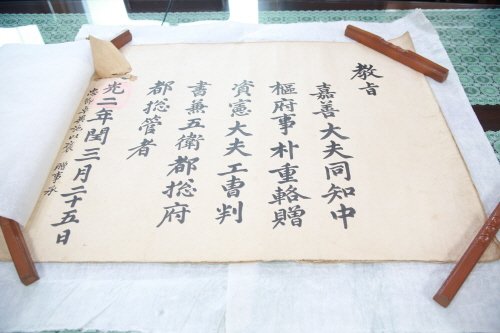 教旨
嘉善大夫同知中
樞府事朴重輅贈
資憲大夫工曹判
書兼五衛都総府
都総管者
光二年閏三月二十五日
贈事承